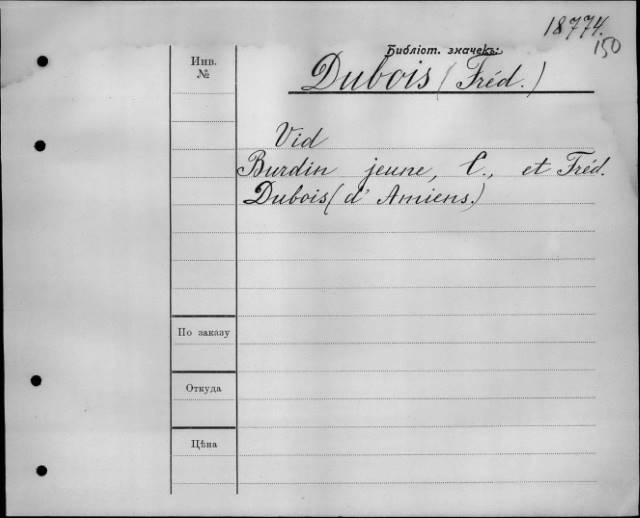 18774.
150
Библіот. значекъ:
Инв.
№
Dubois (Fréd.)
Vid
Burdin jeune, C., et Fréd.
Dubois (d'Amiens.)
По заказу
Откуда
Цѣна